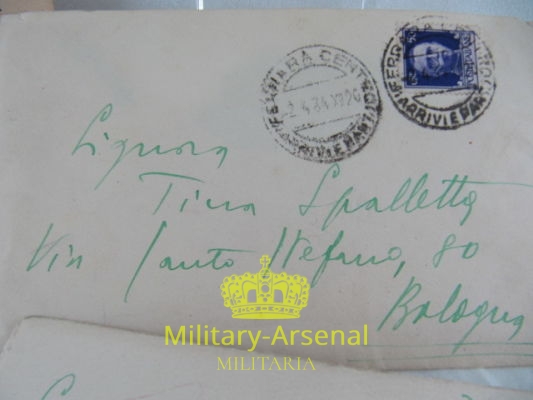 FERRARA CENTRO
2.4.34.XII 20
ARRIVI E PART
FERRARA CENTRO
ARRIVI E PART
Signora
Tina Spalletta
Via Santo Stefano, 80
Bologna
Military-Arsenal
MILITARIA